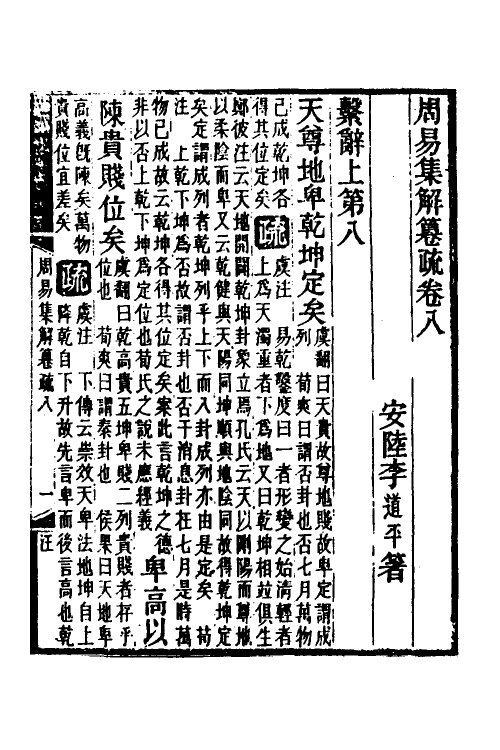 周易集解篹疏卷八
安陸李道平著
繫辭上第八
天尊地卑乾坤定矣
虞翻曰天貴故尊地賤故卑定謂成
列 荀爽曰謂否卦也否七月萬物
已成乾坤各
得其位定矣
疏
虞注 易乾鑿度曰一者形變之始清輕者
上爲天濁重者下爲地又曰乾坤相竝俱生
鄭彼注云天地開闢乾坤卦象立焉孔氏云天以剛陽而尊地
以柔陰而卑又云乾健與天陽同坤順與地陰同故得乾坤定
矣定謂成列者乾坤列乎上下而八卦成列亦由是定矣 荀
注 上乾下坤爲否故謂否卦也否于消息卦在七月是時萬
物已成故云乾坤各得其位定矣案此言乾坤之德
非以否上乾下坤爲定位也荀氏之說未應經義
卑高以
陳貴賤位矣
虞翻曰乾高貴五坤卑賤二列貴賤者存乎
位也 荀爽曰謂泰卦也 侯果曰天地卑
高義旣陳矣萬物
貴賤位宜差矣
疏
虞注 下傳云崇效天卑法地坤自上
降乾自下升故先言卑而後言高也乾
周易集解篹疏八
一